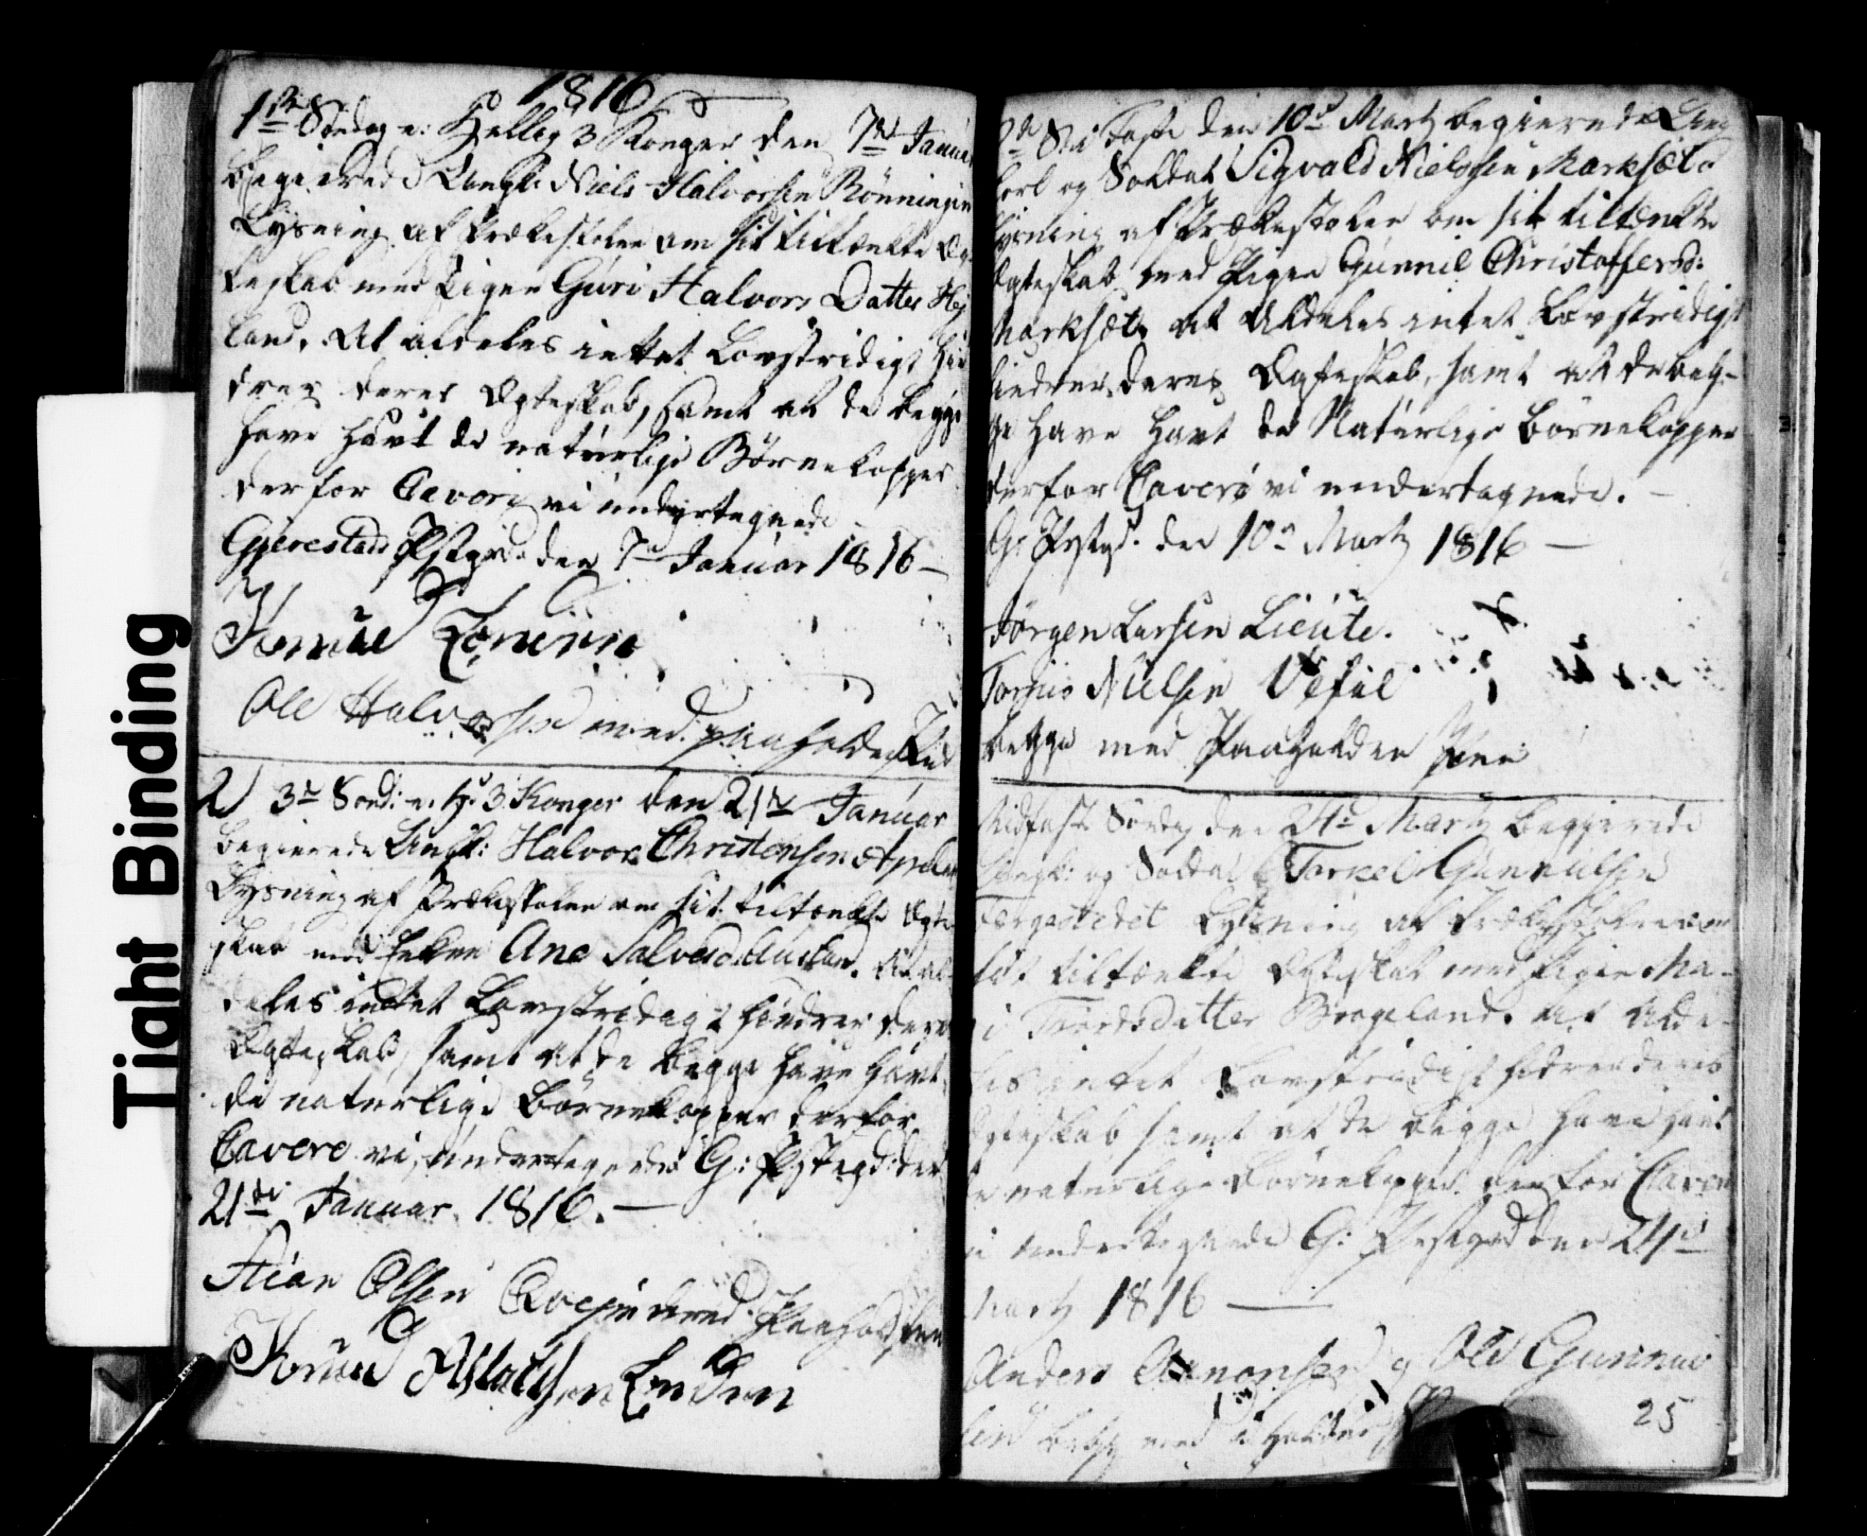 1816
1ste Søndag e: Hellig 3 Konger den 7de Januar
Begierede Ungk: Niels Halvorsen Rønningen
Lysning af Prækestolen om sit tiltænkte Æg-
teskab med Pigen Guri Halvors Datter
land, At aldeles intet Lovstridigt hin
drer deres Ægteskab, samt at de begge
have havt de naturlige Børnekopper
derfor Cavere vi undertegnede
Gjerestads Præstgrd den 7de Januar 1816 –
Knud
Ole Halvorsen med paaholden Pen
2) 3de Sønd: e. H. 3 Konger den 21de Januar
begierede Ungk: Halvor Christensen
Lysning af Prækestolen om sit tiltænkte Ægte
skab med Enken Ane Salvesd. at al-
deles intet Lovstridigt hindrer deres
Ægteskab, samt at de begge have havt
de naturlige Børnekopper derfor
Cavere vi undertegnede G: Præstegd: den
21de Januar 1816. –
Stian Olsen med Paaholden Pen
Knud Linden
2de Sø: i Faste den 10de Martz begierede Ung
karl og Soldat Sigvald Nielssen Marksæt
Lysning af Prækestolen om sit tiltænkte
Ægteskab med Pigen Gunnil Christoffersd:
Marksæt, at Aldeles intet Lovstridigt
hindrer deres Ægteskab, samt at de beg-
ge have havt de Naturlige Børnekopper
derfor Cavere vi undertegnede. –
G: Præstgd. den 10de Martz 1816 –
Jørgen Larsen Lieute.
Torjus Nielsen Vefal
begge med Paaholden Pen
Midfaste Søndag den 24de Martz begierede
Ungk: og Soldat Torkel Gunnulsen
Lysning af Prækestolen om
sit tiltænkte Ægteskab med Pigen Ma-
ri Tiordsdatter Brogeland. at Alde-
les intet Lovstridigt hindrer deres
Ægteskab samt at de begge have havt
de naturlige Børnekopper derfor Cavere
vi undertegnede G: Præstgrd den 24de
Martz 1816 –
Anders Aanonsen og Ole Gunnul
sen begge med Paaholden
25
Tight Binding